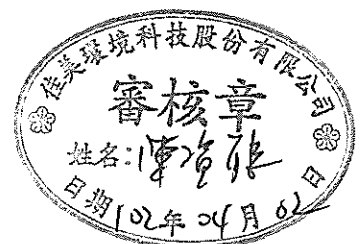 佳美環境科技股份有限公司
審核章
姓名:陳
日期 102年 04月 02日